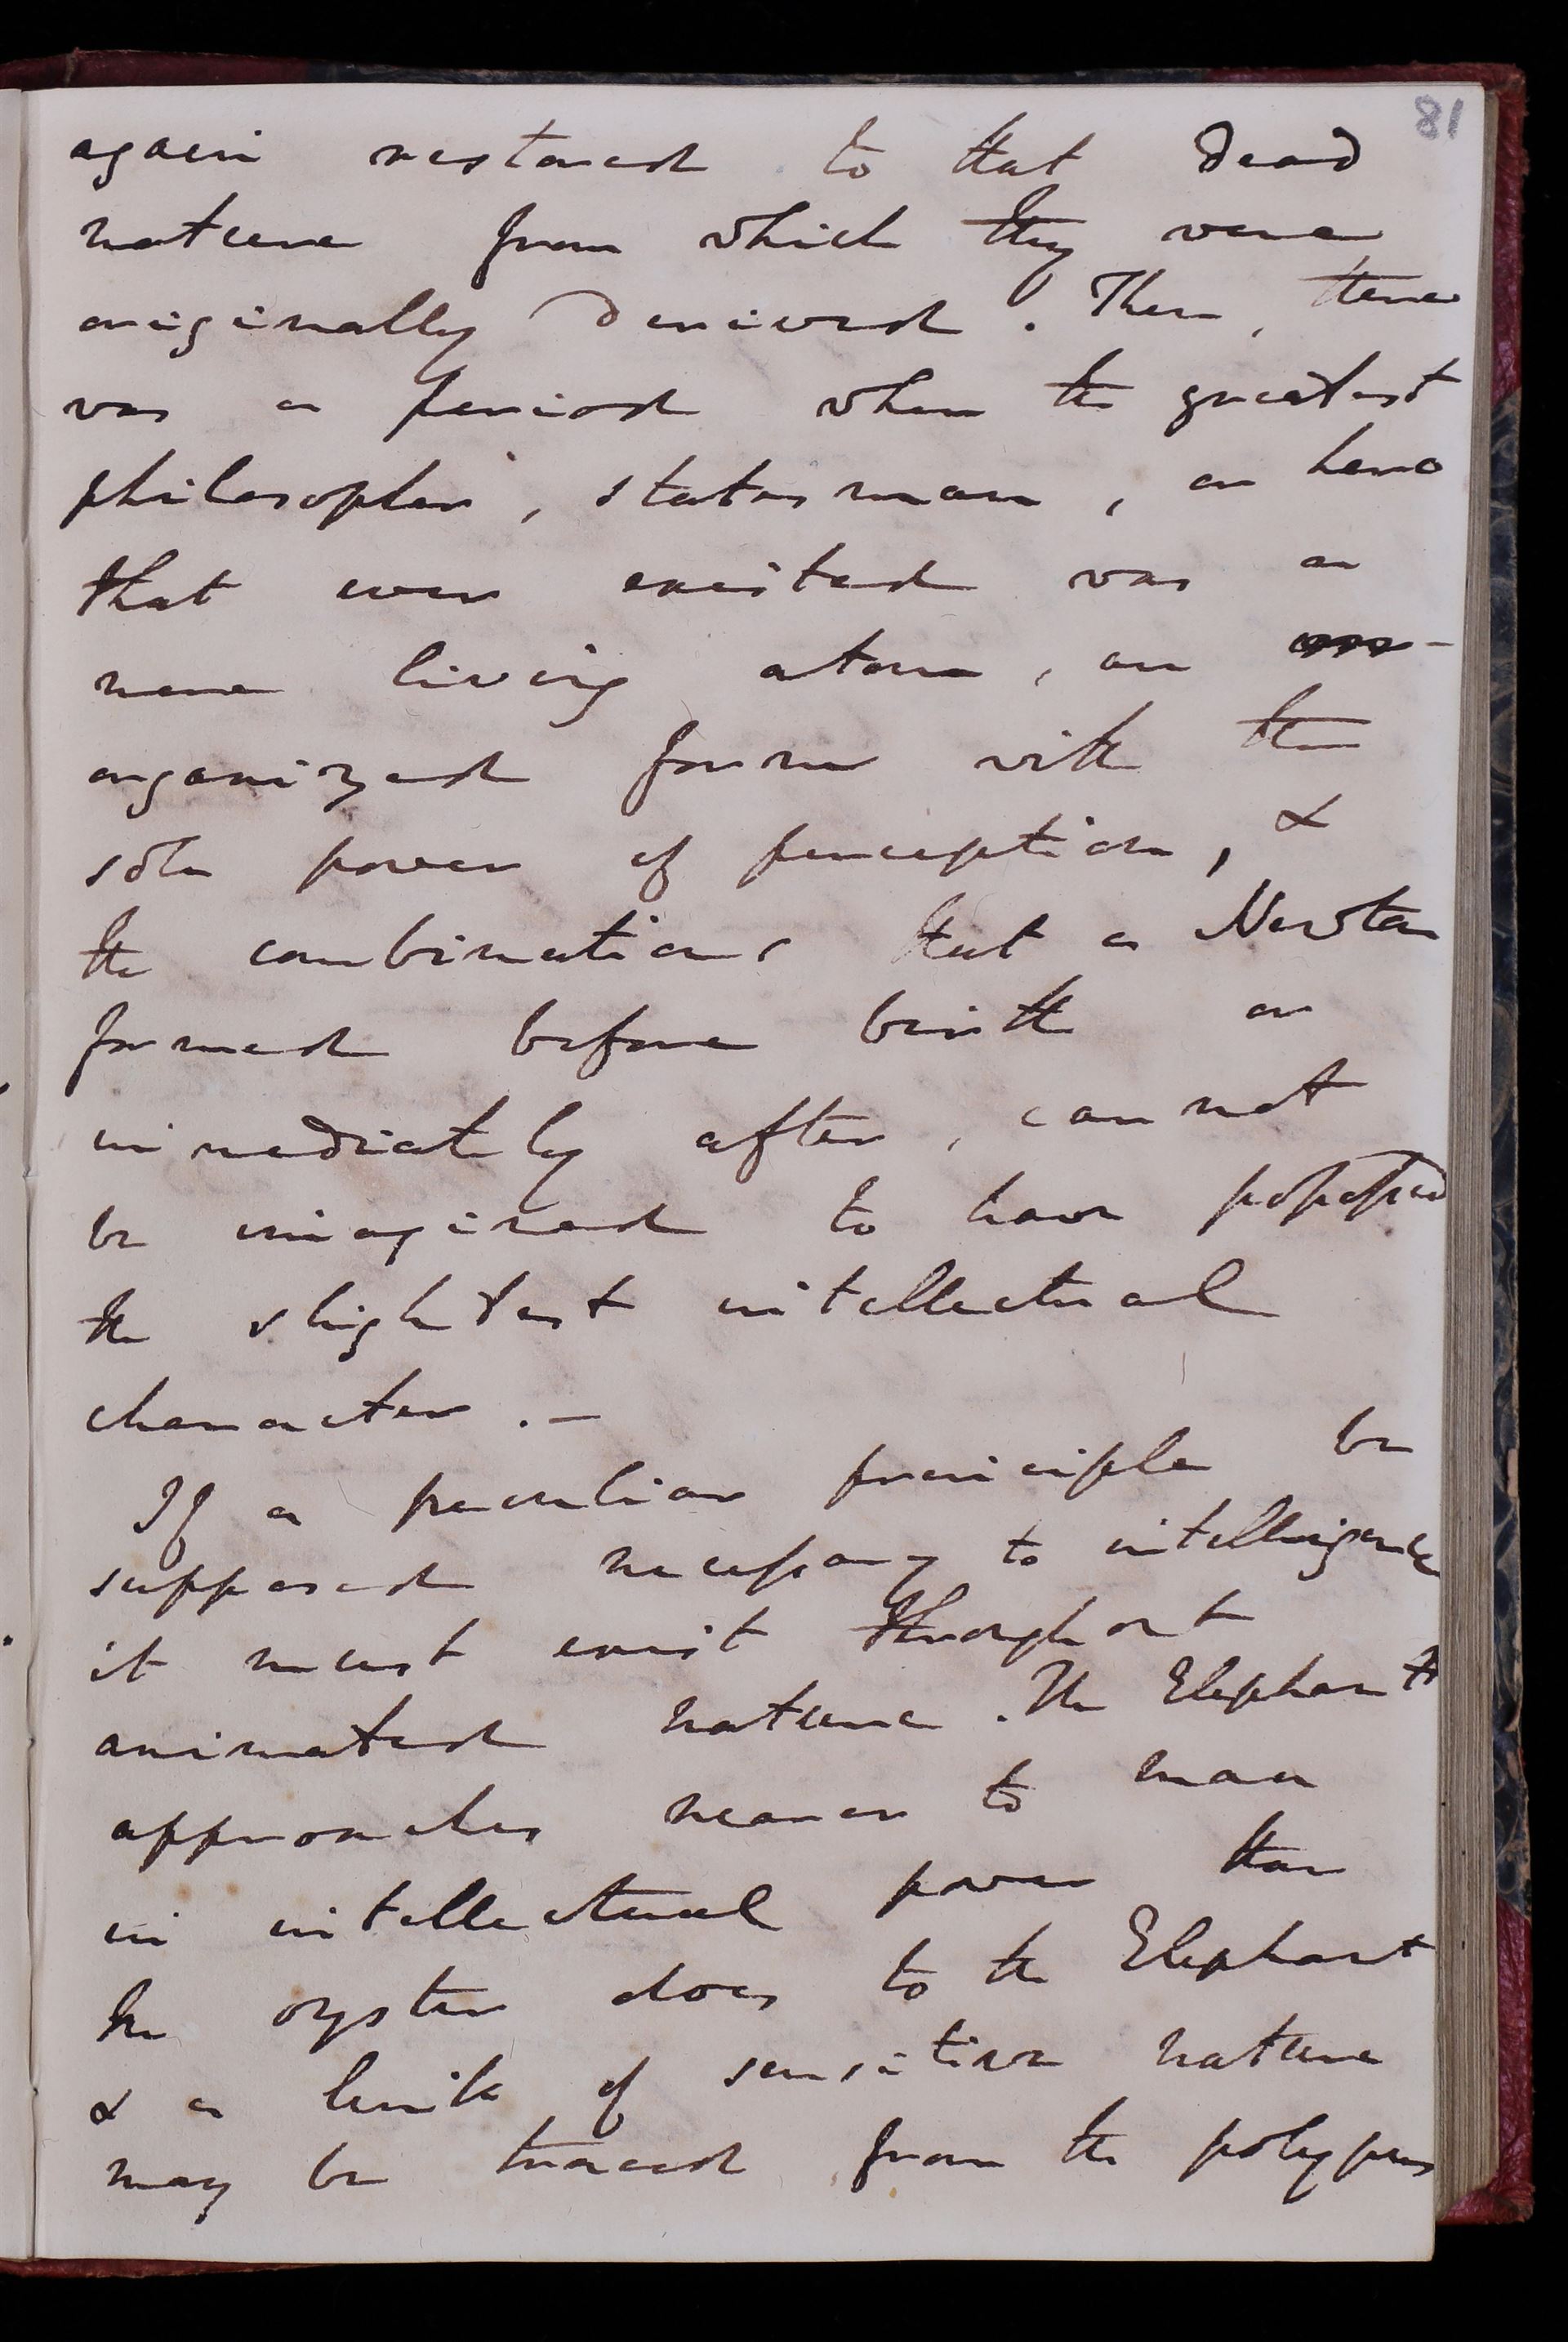 81
again restored to that dead
nature from which they were
originally derived. Then, there
was a period when the greatest
philosopher, statesman, or hero
that ever existed was a
mere living atom, an
organized form with the
sole power of perception, &
the combinations that a Newton
formed before birth or
immediately after, cannot
be imagined to have possessed
the slightest intellectual
character. –
If a peculiar principle be
supposed necessary to intelligence
it must exist throughout
animated nature. The Elephant
approaches nearer to man
in intellectual power than
the oyster does to the Elephant
& a link of sensitive nature
may be traced from the polypus